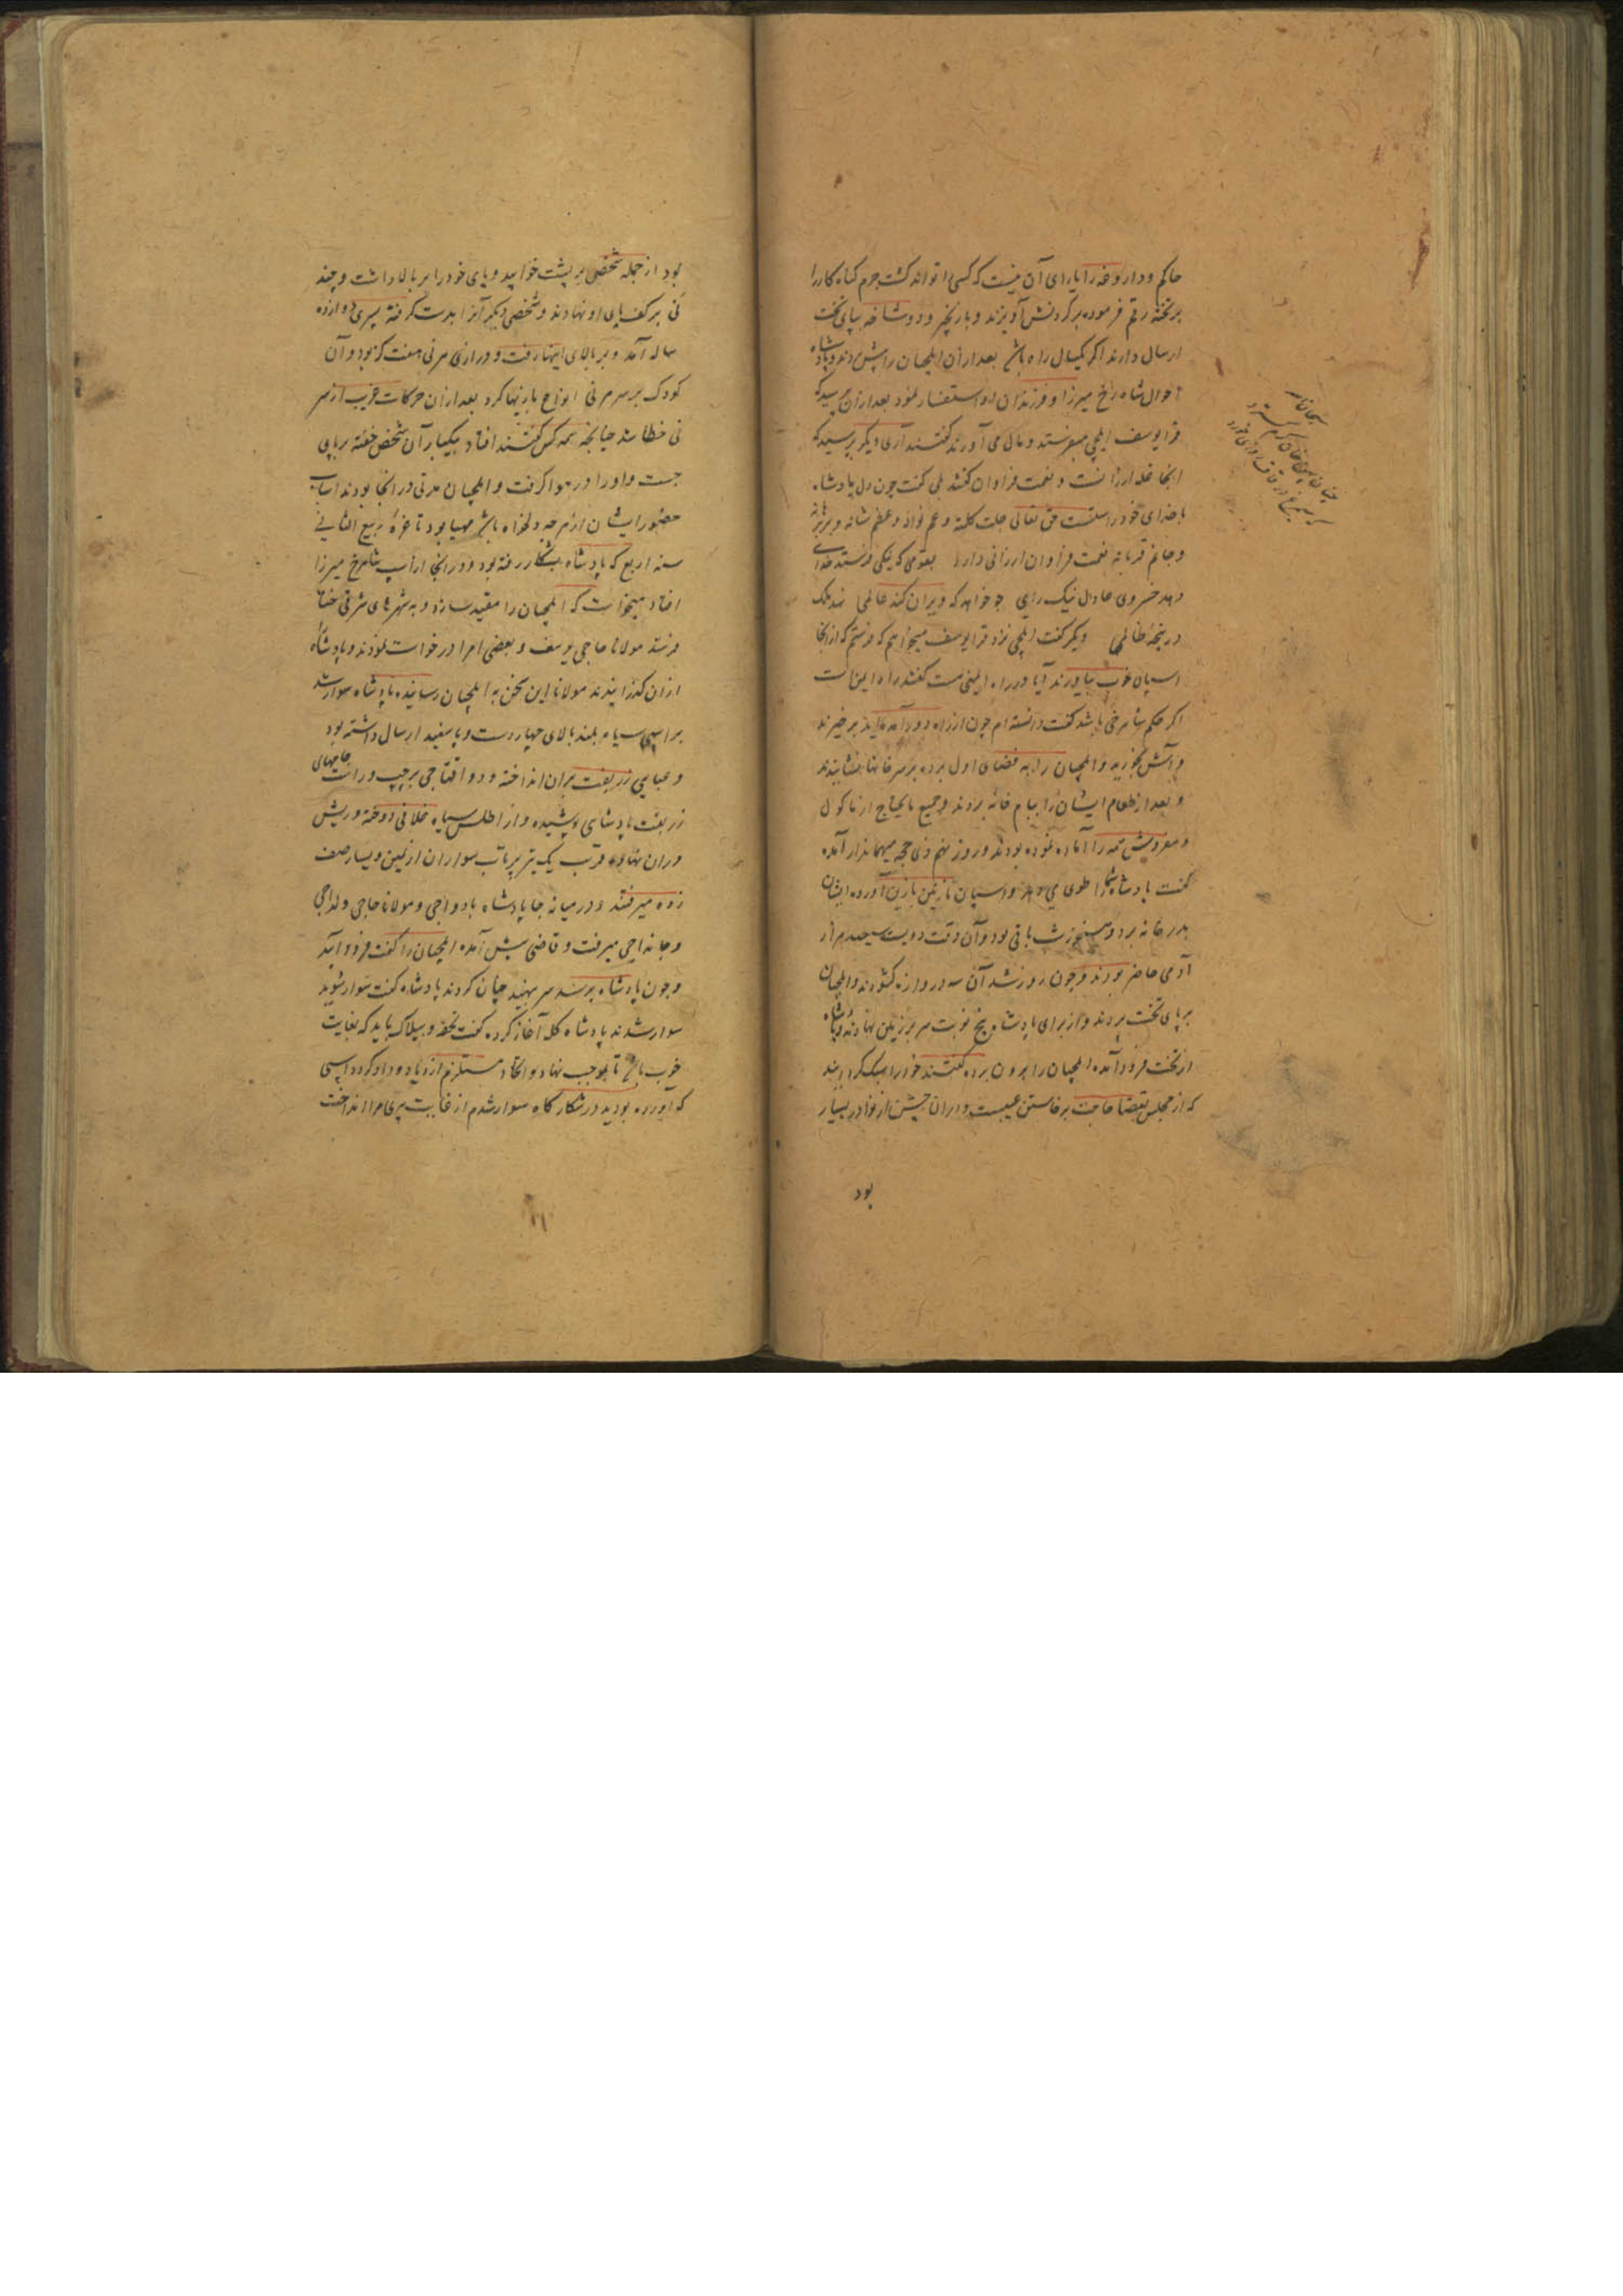 حاکم و داروغه را یارای آن نیست که کسی را تواند کشت جرم گناه کار را
بر تخته رقم فرموده بر گردنش آویزند و با زنجیر و دوشاخه بپای تخت
ارسال دارند اگر یکسال راه باشد بعد ازان ایلچیان را پیش بردند و پادشاه
احوال شاه رخ میرزا و فرزندان او استفسار نمود بعد ازان پرسید که
قرا یوسف ایلچی میفرستد و مال می آورند گفتند آری دیگر پرسید که
آنجا غله ارزانست و نعمت فراوان گفتند بلی گفت چون دل پادشاه
با خدای خود راستست حق تعالی جلت کلمته و عم نواله و عظم شانه و برهانه
نعمت فراوان ارزانی دارد بقومی که نیکی فرستد خدای
دهد خسروی عادل نیک رای چو خواهد که ویران کند عالمی نهد ملک
در پنجه ظالمی دیگر گفت ایلچی نزد قرا یوسف میخواهم که فرستم که از آنجا
اسپان خوب بیاورند آیا در راه ایمنی هست گفتند راه ایمن است
اگر حکم شاه رخی باشد گفت دانسته ام چون از راه دور آمده اید برخیزید
و آش بخورید و ایلچیان را به فضای اول برده بر سر خانها بنشانیدند
و بعد از طعام ایشان را بیام خانه بردند و جمیع مایحتاج از ماکول
و مفروش همه را آماده نموده بودند و روز نهم ذی حجه میهماندار آمده
گفت پادشاه شما را طوی می دهد و اسپان با زین آورده ایشان
بدر خانه برد و هنوز شب باقی بود و آن وقت دویست سیصد هزار
آدمی حاضر بودند و چون روز شد آن سه دروازه گشودند و ایلچیان
بر پای تخت بردند و از برای پادشاه پنج نوبت سر بر زمین نهادند و پادشاه
از تخت فرود آمده ایلچیان را برون برده گفتند خود را سبک گردانید
که از مجلس بقضا حاجت برخاستن عیبست و در آن جشن از نوادر بسیار
بود
بود از جمله شخصی بر پشت خوابید و پای خود را بر بالا داشت و چند
نی بر کف پای او نهادند و شخصی دیگر آنرا بدست گرفته پسری دوازده
ساله آمد و بر بالای اینها رفت و درازی هر نی هفت گز بود و آن
کودک بر سر هر نی انواع بازیها کرد بعد ازان حرکات غریب از سر
نی خطا شد چنانچه همه کس گفتند افتاد بیکبار آن شخص خفته بر پای
جست و او را در هوا گرفت و ایلچیان مدتی در آنجا بودند اسباب
حضور ایشان از هر چه دلخواه باشد مهیا بود تا غره ربیع الثانی
سنه اربع که پادشاه بشکار رفته بود و در آنجا از اسپ شاهرخ میرزا
افتاد میخواست که ایلچیان را مقید سازد و به شهرهای شرقی ختا
فرستد مولانا حاجی یوسف و بعضی امرا درخواست نمودند و پادشاه
ازان گذرانیدند مولانا این سخن به ایلچیان رسانیده پادشاه سوار شد
بر اسپی سیاه بلند بالای چهار دست و پا سفید ارسال داشته بود
و عبایی زربفت بران انداخته و دو اقتاجی بر چپ و راست جامهای
زربفت پادشاهی پوشیده و از اطلس سیاه غلافی دوخته و ریش
دران نهاده قرب یک تیر پرتاب سواران از یمین و یسار صف
زده میرفتند و در میانه جا پادشاه با دواجی و مولانا حاجی و لداجی
و جانداجی میرفت و قاضی پیش آمده ایلچیان را گفت فرود آیید
و چون پادشاه برسد سر بنهید چنان کردند پادشاه گفت سوار شوید
سوار شدند پادشاه گله آغاز کرده گفت تحفه و بیلاک باید که بغایت
خوب باشد تا موجب نهاد و اتحاد مستلزم ازدیاد وداد گردد اسپی
که آورده بودید در شکارگاه سوار شدم از غایت پیری مرا انداخت